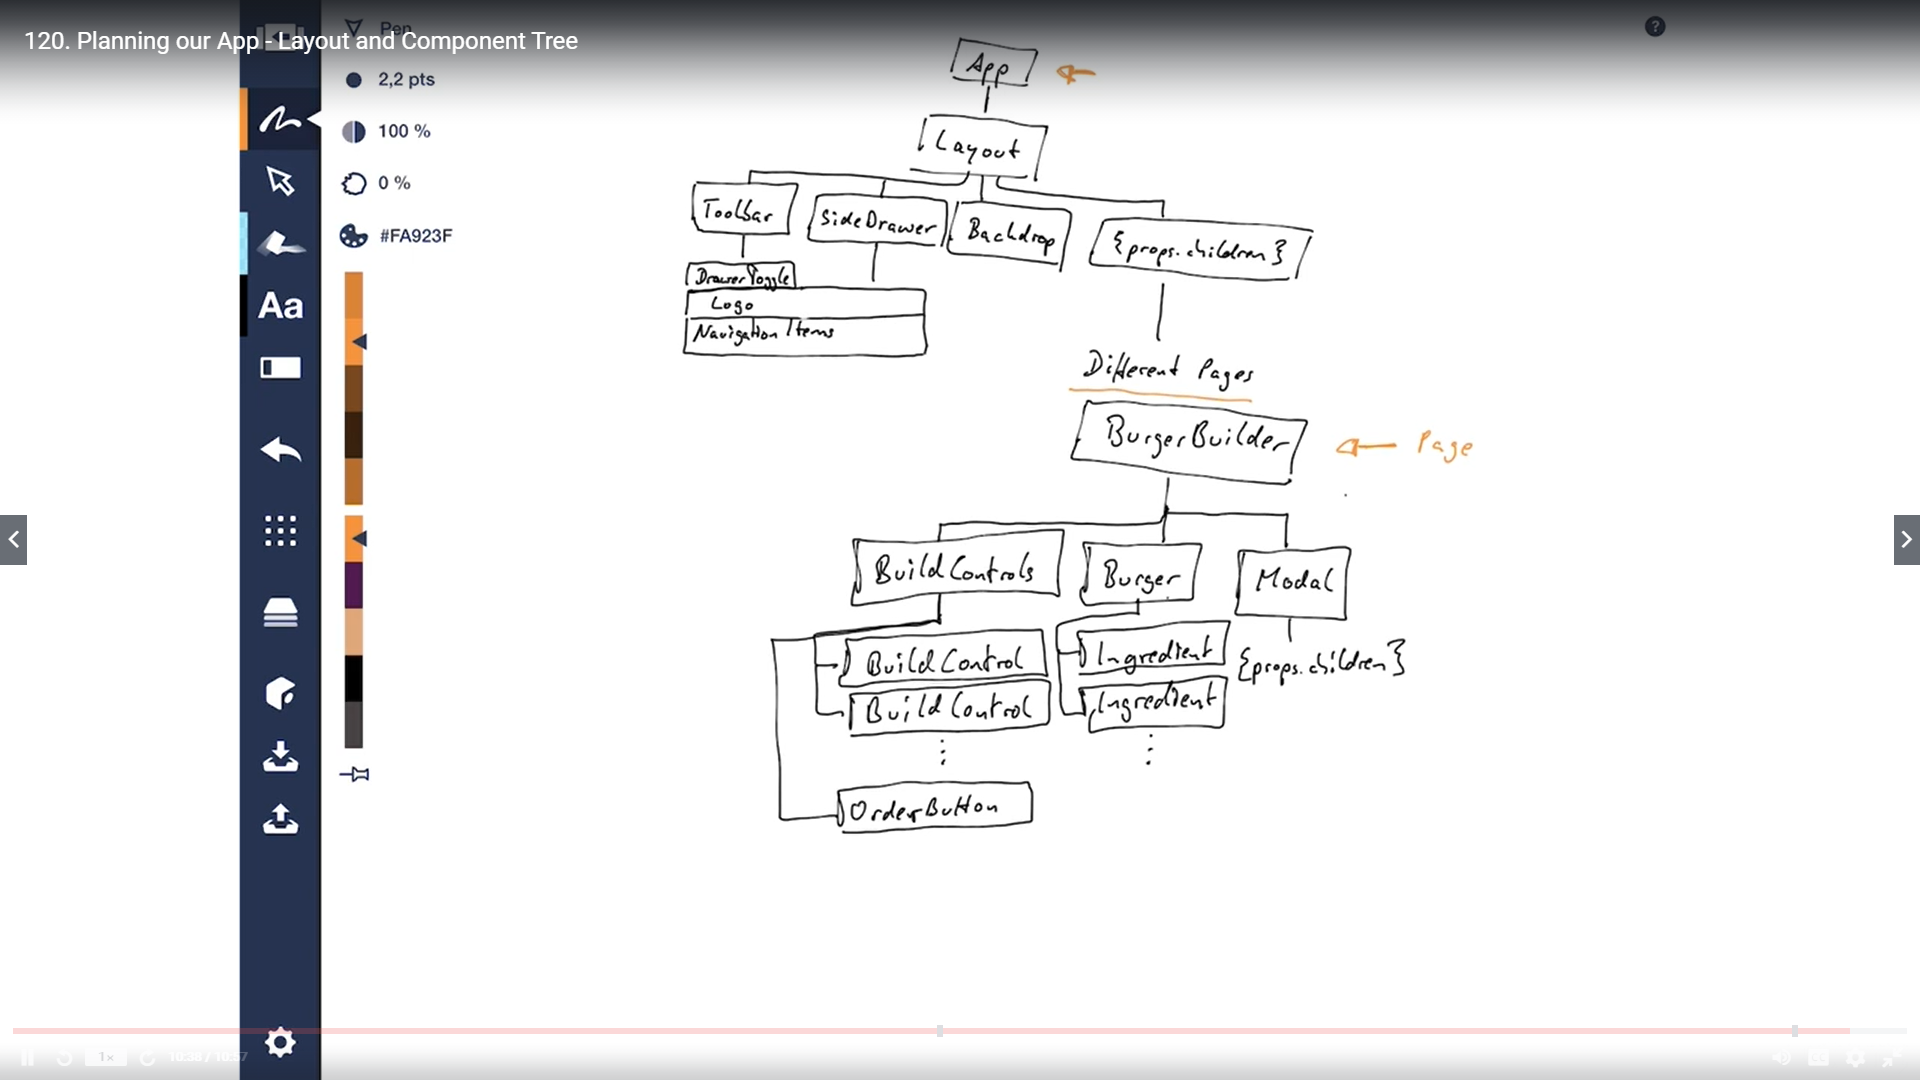 120. Planning our App - Layout and Component Tree
Pen
2,2 pts
100 %
0 %
#FA923F
Aa
?
App
Layout
Toolbar
SideDrawer
Backdrop
{props.children}
DrawerToggle
Logo
Navigation Items
Different Pages
BurgerBuilder
Page
BuildControls
Burger
Modal
BuildControl
Ingredient
{props.children}
BuildControl
Ingredient
OrderButton
1x
10:38 / 10:57